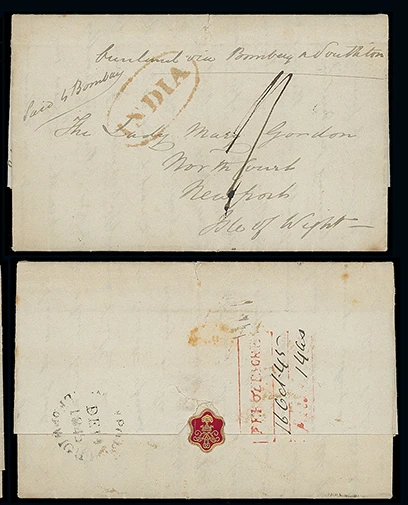 Overland via Bombay & South'ton
Paid to Bombay
INDIA
The Lady Mary Gordon
North Court
Newport
Isle of Wight
16 Oct 45
14 as
DE
1845